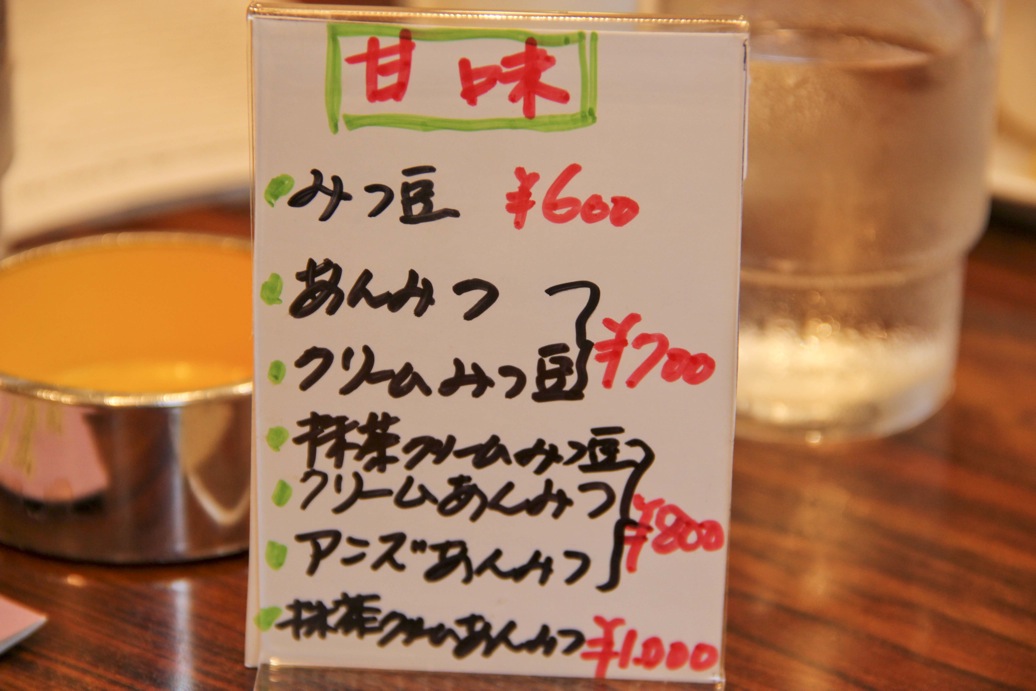 甘味
みつ豆 ¥600
あんみつ
クリームみつ豆
¥700
抹茶クリームみつ豆
クリームあんみつ
アンズあんみつ
¥800
抹茶クリームあんみつ ¥1.000